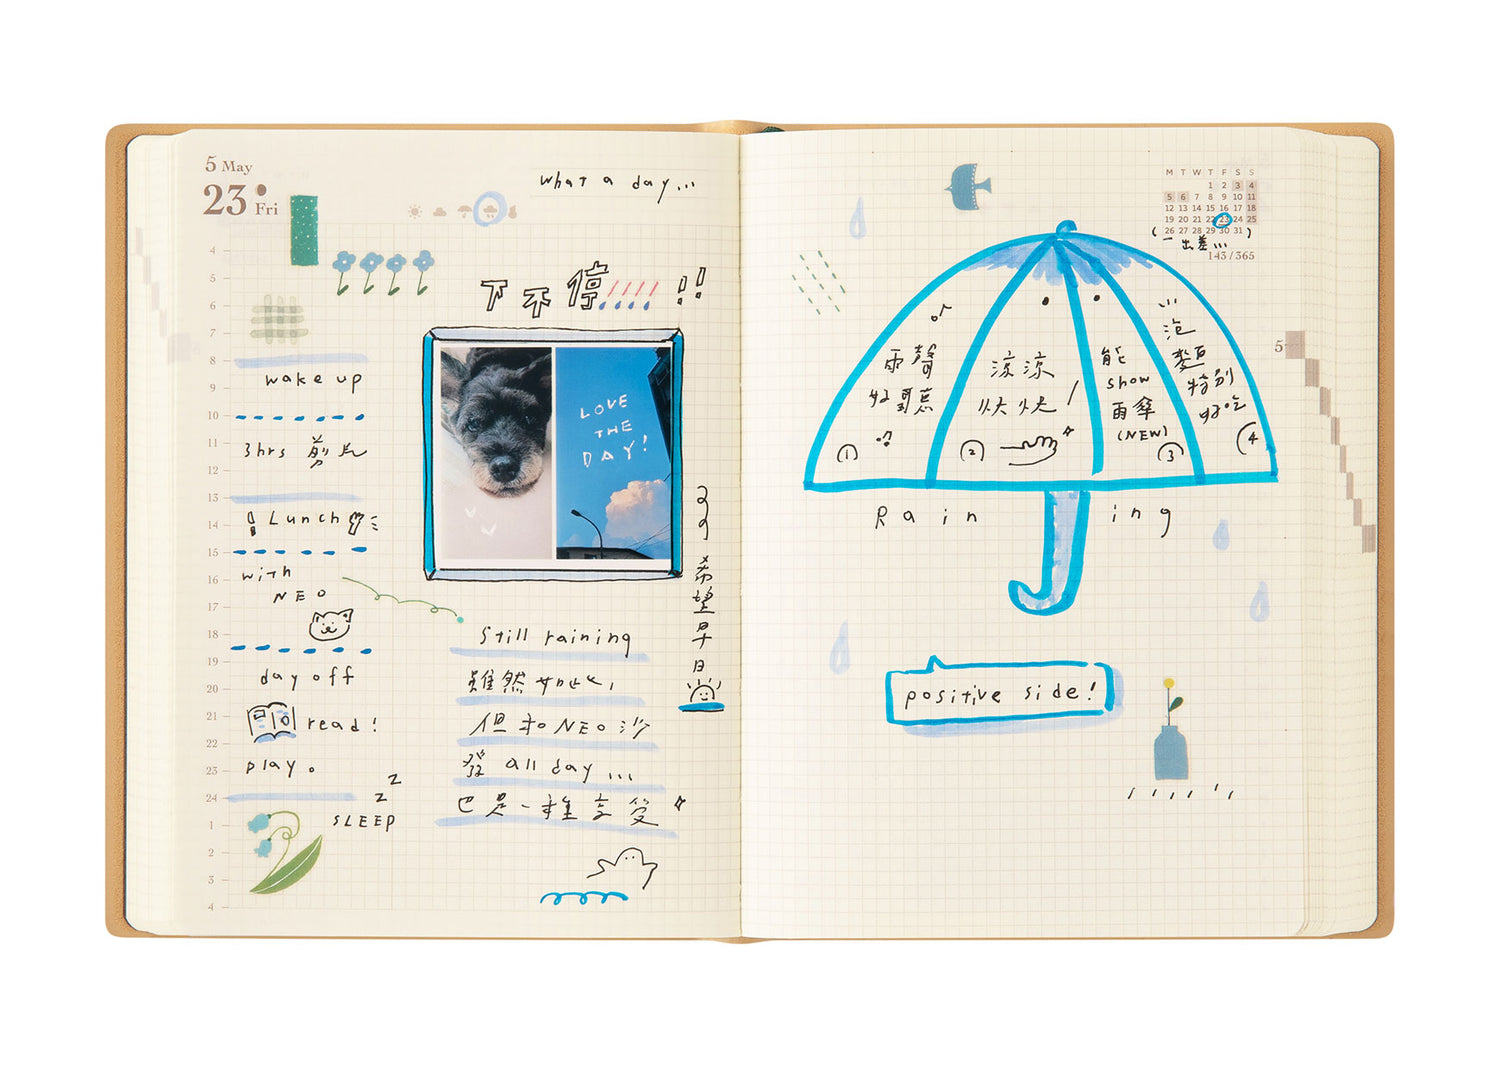 5 May
23 Fri
what a day...
下不停!!
4
5
6
7
8
wake up
9
10
11
3hrs 剪片
12
13
14
Lunch
15
16
with
NEO
17
18
19
day off
20
21
read!
22
23
play。
24
z
z
SLEEP
1
2
3
4
LOVE
THE
DAY!
希望早日
still raining
雖然如此,
但和NEO沙
發 all day ...
也是一種享受
M T W T F S S
1 2 3 4
5 6 7 8 9 10 11
12 13 14 15 16 17 18
19 20 21 22 23 24 25
26 27 28 29 30 31
(一出差...)
143/365
5
雨聲
好聽
①
涼涼
快快!
②
能
show
雨傘
(NEW)
③
泡
麵
特別
好吃
④
Raining
positive side!